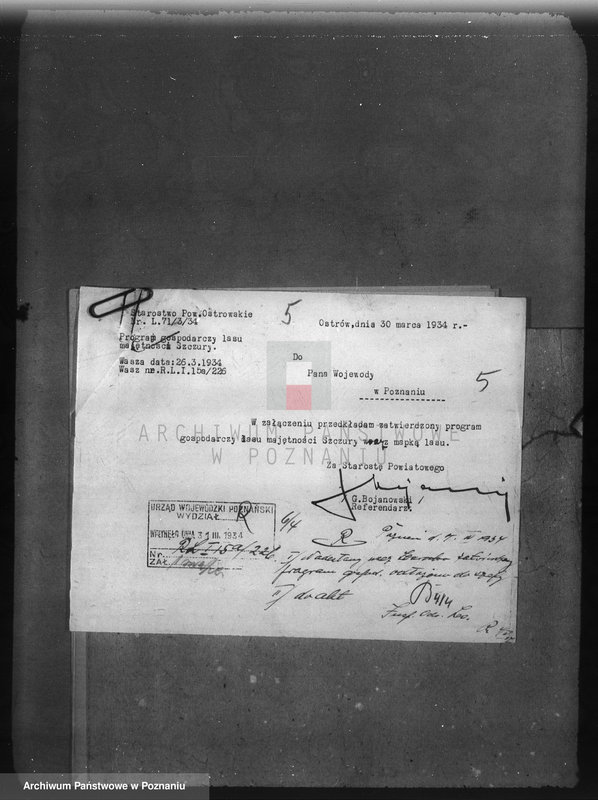 Starostwo Pow.Ostrowskie
Nr. L.71/3/34
5
Ostrów,dnia 30 marca 1934 r.-
Program gospodarczy lasu
majętności Szczury.
Wasza data:26.3.1934
Wasz nr.R.L.I.15a/226
Do
Pana Wojewody
w Poznaniu
5
W załączeniu przedkładam zatwierdzony program
gospodarczy lasu majętności Szczury wraz z mapką lasu.
ARCHIWUM PAŃSTWOWE
W POZNANIU
Za Starostę Powiatowego
G.Bojanowski/
Referendarz.
URZĄD WOJEWÓDZKI POZNAŃSKI
WYDZIAŁ R
WPŁYNĘŁO DNIA 31 III. 1934
Nr. RL I 15a/226
ZAŁ.
6/4
R
Poznań d. 1934
1/ Nadesłany przez Starostwo
program gosp. do
2/ do akt
4/4
R
Archiwum Państwowe w Poznaniu